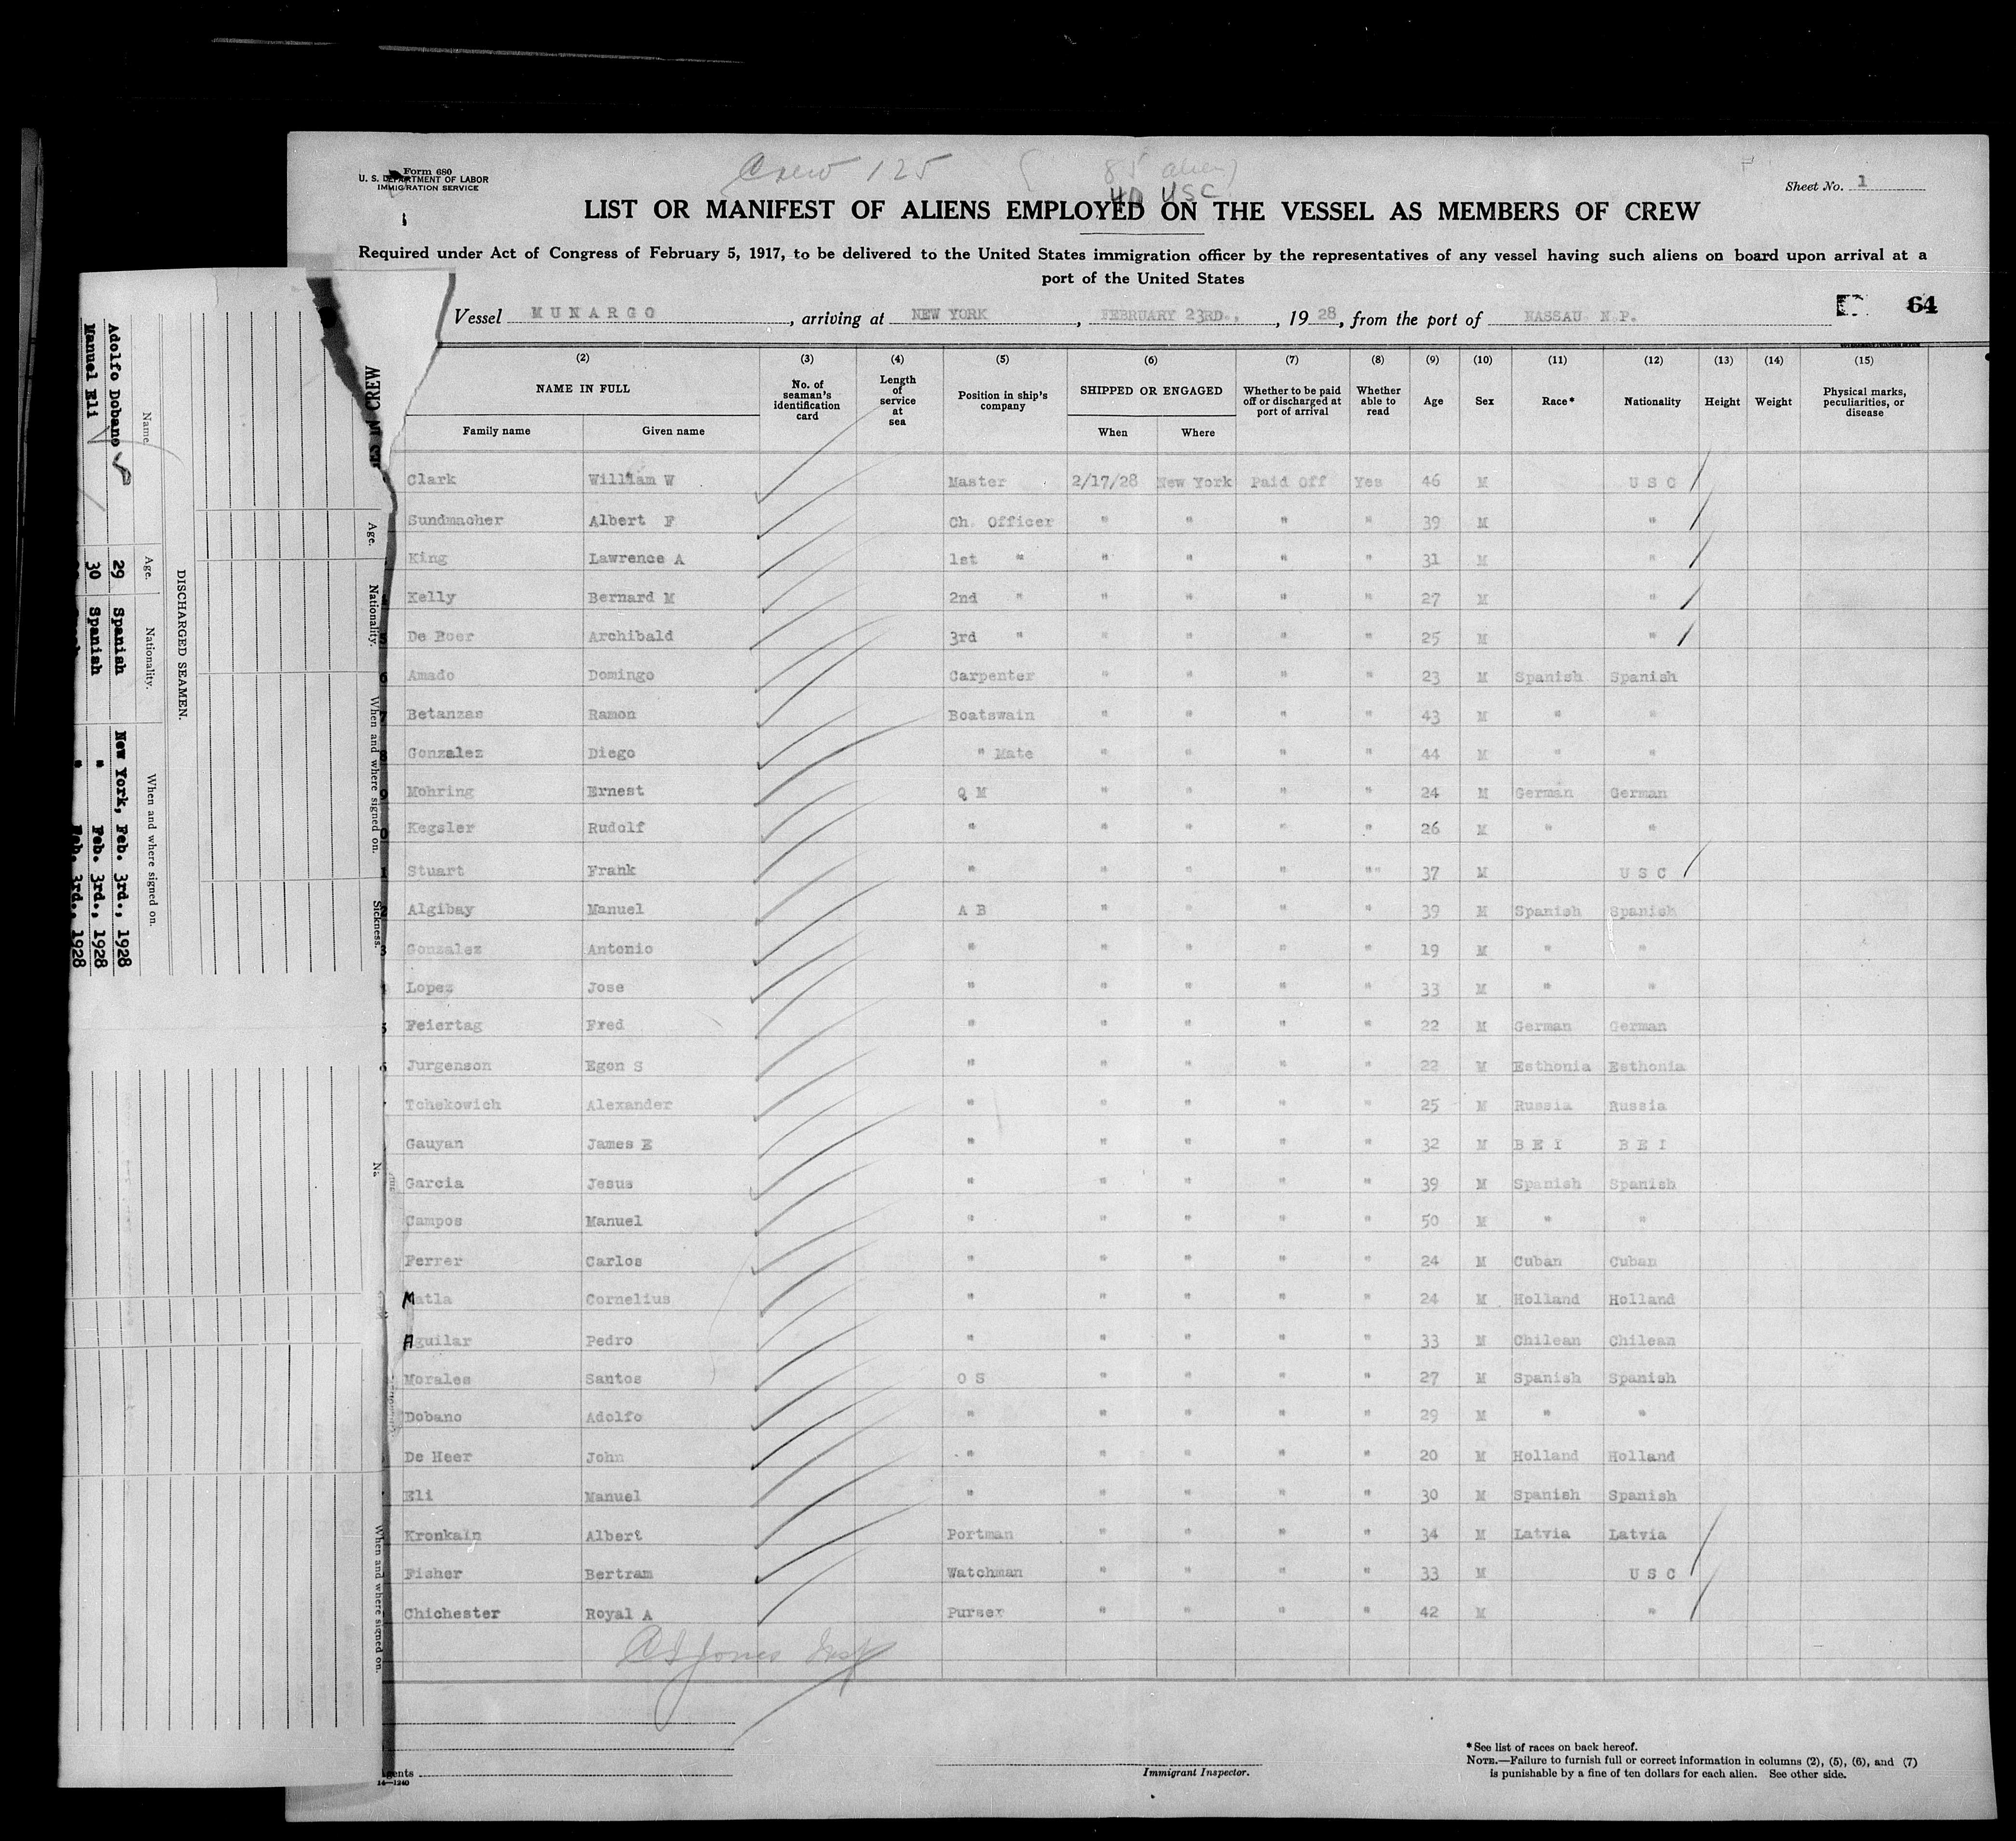 Crew 125 ( 85 alien)
40 USC
Form 680
U. S. DEPARTMENT OF LABOR
IMMIGRATION SERVICE
Sheet No. 1
LIST OR MANIFEST OF ALIENS EMPLOYED ON THE VESSEL AS MEMBERS OF CREW
Required under Act of Congress of February 5, 1917, to be delivered to the United States immigration officer by the representatives of any vessel having such aliens on board upon arrival at a
port of the United States
64
Vessel MUNARGO, arriving at NEW YORK, FEBRUARY 23RD., 1928, from the port of NASSAU N.P.
(2) (3) (4) (5) (6) (7) (8) (9) (10) (11) (12) (13) (14) (15)
NAME IN FULL No. of seaman's identification card Length of service at sea Position in ship's company SHIPPED OR ENGAGED Whether to be paid off or discharged at port of arrival Whether able to read Age Sex Race* Nationality Height Weight Physical marks, peculiarities, or disease
Family name Given name When Where
Clark William W Master 2/17/28 New York Paid Off Yes 46 M U S C
Sundmacher Albert F Ch. Officer " " " " 39 M "
King Lawrence A 1st " " " " " 31 M "
Kelly Bernard M 2nd " " " " " 27 M "
5 De Boer Archibald 3rd " " " " " 25 M "
6 Amado Domingo Carpenter " " " " 23 M Spanish Spanish
7 Betanzas Ramon Boatswain " " " " 43 M " "
8 Gonzalez Diego " Mate " " " " 44 M " "
9 Mohring Ernest Q M " " " " 24 M German German
0 Kegsler Rudolf " " " " " 26 M " "
1 Stuart Frank " " " " " 37 M U S C
2 Algibay Manuel A B " " " " 39 M Spanish Spanish
3 Gonzalez Antonio " " " " " 19 M " "
Lopez Jose " " " " " 33 M " "
5 Feiertag Fred " " " " " 22 M German German
Jurgenson Egon S " " " " " 22 M Esthonia Esthonia
Tchekowich Alexander " " " " " 25 M Russia Russia
Gauyan James E " " " " " 32 M B E I B E I
Garcia Jesus " " " " " 39 M Spanish Spanish
Campos Manuel " " " " " 50 M " "
Ferrer Carlos " " " " " 24 M Cuban Cuban
Matla Cornelius " " " " " 24 M Holland Holland
Aguilar Pedro " " " " " 33 M Chilean Chilean
Morales Santos O S " " " " 27 M Spanish Spanish
Dobano Adolfo " " " " " 29 M " "
De Heer John " " " " " 20 M Holland Holland
Eli Manuel " " " " " 30 M Spanish Spanish
Kronkain Albert Portman " " " " 34 M Latvia Latvia
Fisher Bertram Watchman " " " " 33 M U S C
Chichester Royal A Purser " " " " 42 M "
Jones Insp
Immigrant Inspector.
14—1240
*See list of races on back hereof.
NOTE.—Failure to furnish full or correct information in columns (2), (5), (6), and (7)
is punishable by a fine of ten dollars for each alien. See other side.
CREW
Age.
Nationality.
When and where signed on.
Sickness.
When and where signed on.
DISCHARGED SEAMEN.
Name. Age. Nationality. When and where signed on.
Adolfo Dobano 29 Spanish New York, Feb. 3rd., 1928
Manuel Eli 30 Spanish " Feb. 3rd., 1928
" Feb. 3rd., 1928